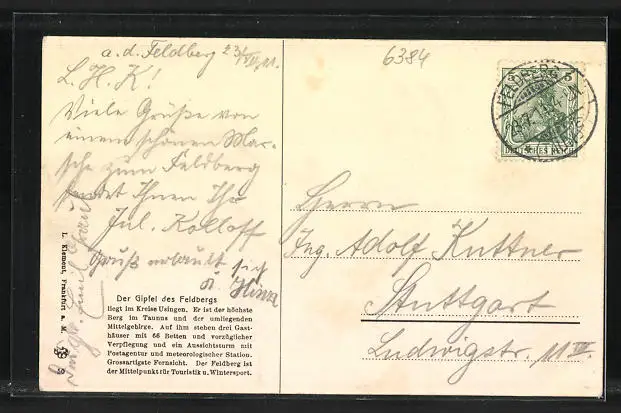 a. d. Feldberg 23/VII.11.
L. H. K!
Viele Grüße von
einem schönen Mar-
sche zum Feldberg
sendet Ihnen Ihr
Jul. Kolloff
Gruß erlaubt sich
6384
5
DEUTSCHES REICH
Herrn
Ing. Adolf Kuttner
Stuttgart
Ludwigstr. 11 III.
L. Klement, Frankfurt a. M.
Der Gipfel des Feldbergs
liegt im Kreise Usingen. Er ist der höchste
Berg im Taunus und der umliegenden
Mittelgebirge. Auf ihm stehen drei Gast-
häuser mit 66 Betten und vorzüglicher
Verpflegung und ein Aussichtsturm mit
Postagentur und meteorologischer Station.
Grossartigste Fernsicht. Der Feldberg ist
der Mittelpunkt für Touristik u. Wintersport.